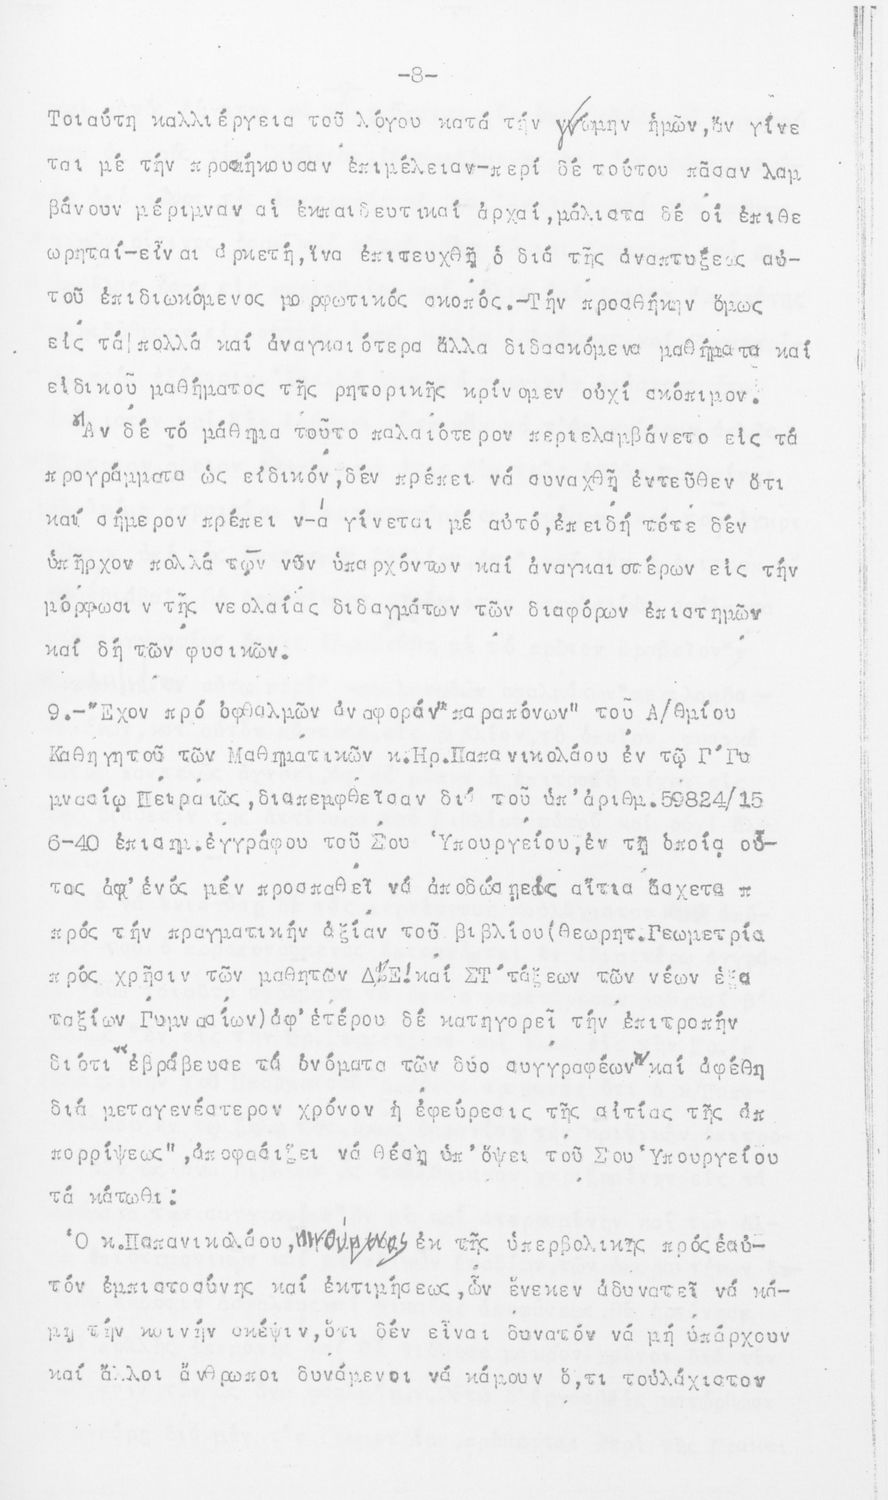 -8-
Τοιαύτη καλλιέργεια τοῦ λόγου κατά τήν γνώμην ἡμῶν,ἄν γίνε
ται μέ τήν προσήκουσαν ἐπιμέλειαν-περί δέ τούτου πᾶσαν λαμ
βάνουν μέριμναν αἱ ἐκπαιδευτικαί ἀρχαί,μάλιστα δέ οἱ ἐπιθε
ωρηταί-εἶναι ἀρκετή,ἵνα ἐπιτευχθῇ ὁ διά τῆς ἀναπτυξεως αὐ-
τοῦ ἐπιδιωκόμενος μορφωτικός σκοπός.-Τήν προσθήκην ὅμως
εἰς τά πολλά καί ἀναγκαιότερα ἄλλα διδασκόμενα μαθήματα καί
εἰδικοῦ μαθήματος τῆς ρητορικῆς κρίνομεν οὐχί σκόπιμον.
Ἄν δέ τό μάθημα τοῦτο παλαιότερον περιελαμβάνετο εἰς τά
προγράμματα ὡς εἰδικόν,δέν πρέπει νά συναχθῇ ἐντεῦθεν ὅτι
καί σήμερον πρέπει ν-ά γίνεται μέ αὐτό,ἐπειδή τότε δέν
ὑπῆρχον πολλά τῶν νῦν ὑπαρχόντων καί ἀναγκαιοτέρων εἰς τήν
μόρφωσιν τῆς νεολαίας διδαγμάτων τῶν διαφόρων ἐπιστημῶν
καί δή τῶν φυσικῶν.
9.-"Εχον πρό ὀφθαλμῶν ἀναφοράν"παραπόνων" τοῦ Α/θμίου
Καθηγητοῦ τῶν Μαθηματικῶν κ.Ηρ.Παπανικολάου ἐν τῷ Γ'Γυ
μνασίῳ Πειραιῶς,διαπεμφθεῖσαν δι' τοῦ ὑπ'ἀριθμ.59824/15
6-40 ἐπισημ.ἐγγράφου τοῦ Σου Ὑπουργείου,ἐν τῇ ὁποίᾳ οὗ-
τος ἀφ'ἑνός μέν προσπαθεῖ νά ἀποδώσῃεἰς αἴτια ἄσχετα π
πρός τήν πραγματικήν ἀξίαν τοῦ βιβλίου(Θεωρητ.Γεωμετρία
πρός χρῆσιν τῶν μαθητῶν Δ'Ε'καί ΣΤ'τάξεων τῶν νέων ἑξα
ταξίων Γυμνασίων)ἀφ'ἑτέρου δέ κατηγορεῖ τήν ἐπιτροπήν
διότι"ἐβράβευσε τά ὀνόματα τῶν δύο συγγραφέων"καί ἀφέθη
διά μεταγενέστερον χρόνον ἡ ἐφεύρεσις τῆς αἰτίας τῆς ἀπ
πορρίψεως",ἀποφασίζει νά θέσῃ ὑπ'ὄψει τοῦ Σου Ὑπουργείου
τά κάτωθι:
Ὁ κ.Παπανικολάου, ἐκ τῆς ὑπερβολικῆς πρός ἑαυ-
τόν ἐμπιστοσύνης καί ἐκτιμήσεως,ὧν ἕνεκεν ἀδυνατεῖ νά κά-
μῃ τήν κοινήν σκέψιν,ὅτι δέν εἶναι δυνατόν νά μή ὑπάρχουν
καί ἄλλοι ἄνθρωποι δυνάμενοι νά κάμουν ὅ,τι τοὐλάχιστον